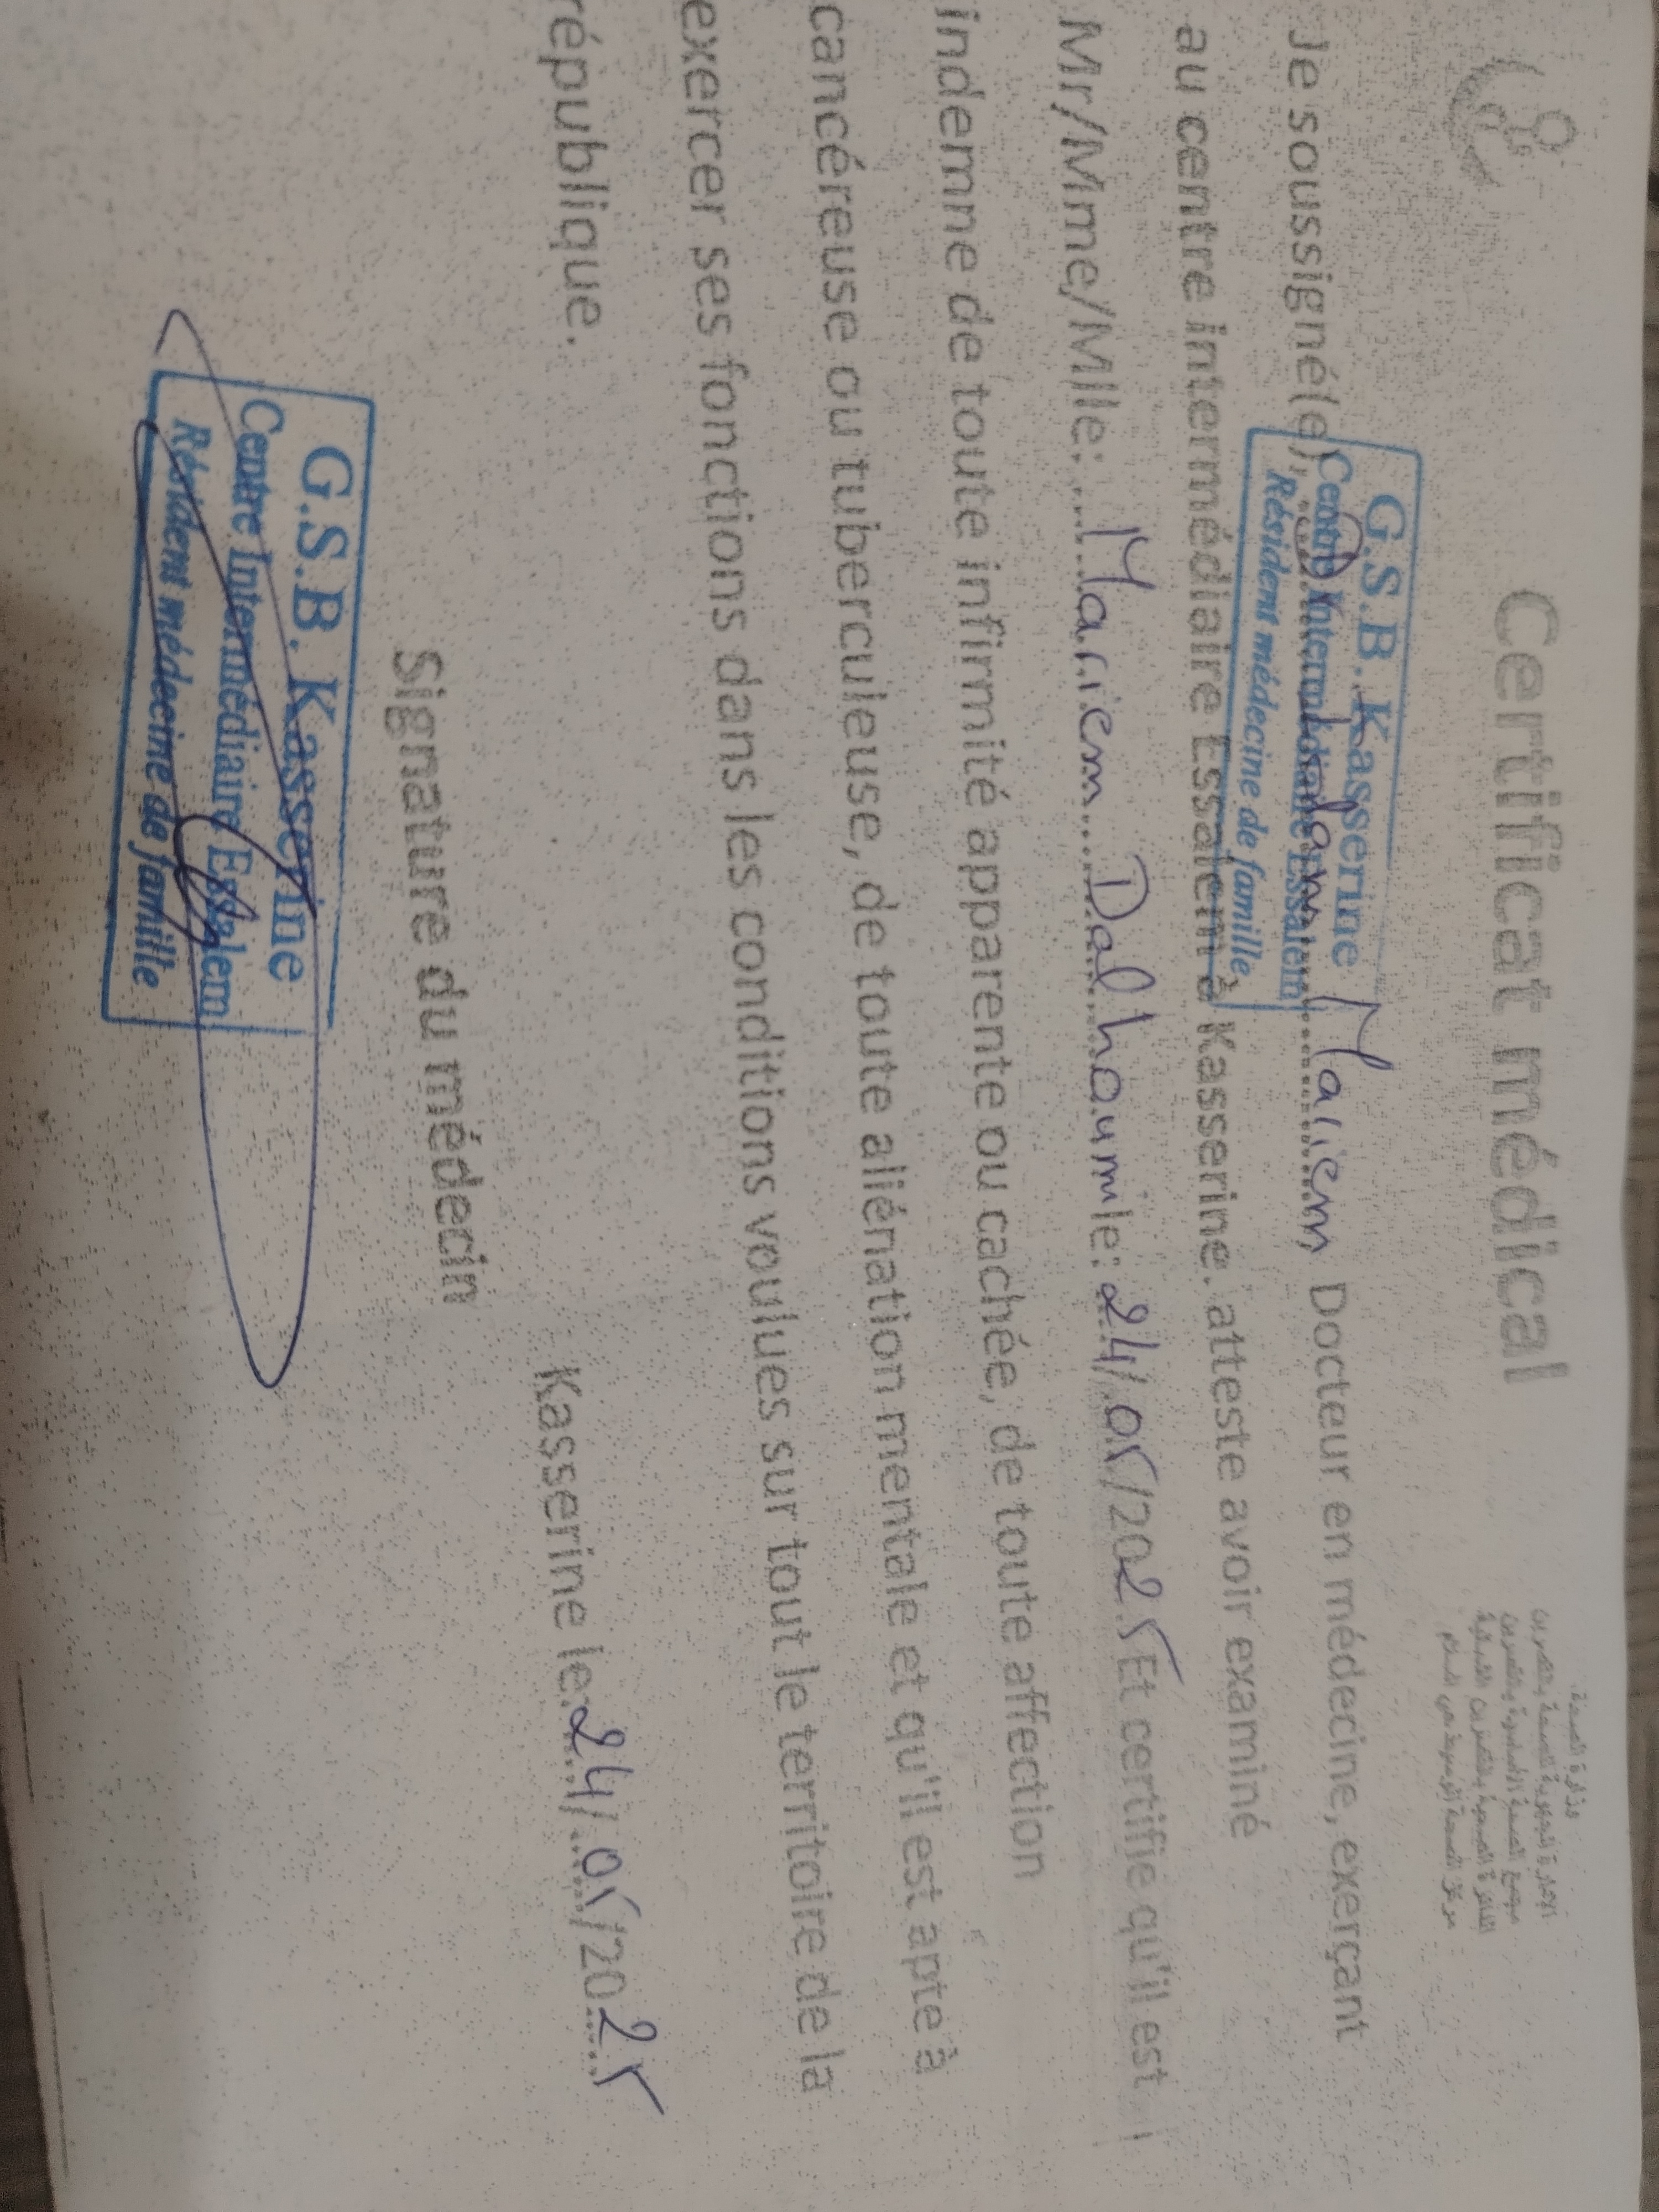 وزارة الصحة
الإدارة الجهوية للصحة بالقصرين
مجمع الصحة الأساسية بالقصرين
الدائرة الصحية بالقصرين الشمالية
مركز الصحة الوسيط حي السلام
Certificat médical
G.S.B. Kasserine
Centre Intermédiaire Essalem
Résident médecine de famille
Je soussigné(e),.... Mariem Docteur en médecine, exerçant
au centre intermédiaire Essalem à Kasserine. atteste avoir examiné
Mr/Mme/Mlle:.... Mariem Dalhoumi le: 24/05/2025 Et certifie qu'il est
indemne de toute infirmité apparente ou cachée, de toute affection
cancéreuse ou tuberculeuse, de toute aliénation mentale et qu'il est apte à
exercer ses fonctions dans les conditions voulues sur tout le territoire de la
république.
Kasserine le: 24/05/2025
Signature du médecin
G.S.B. Kasserine
Centre Intermédiaire Essalem
Résident médecine de famille